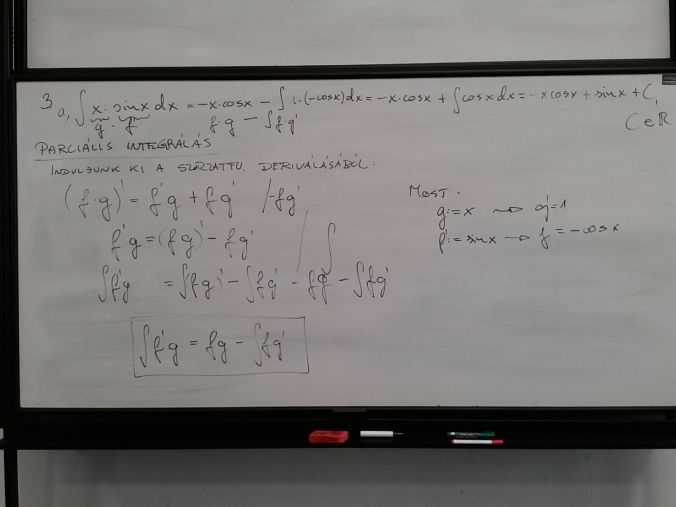 3. a, ∫ x · sinx dx = -x·cosx - ∫ 1·(-cosx) dx = -x·cosx + ∫ cosx dx = -x cosx + sinx + C,
g · f' f·g - ∫ f g' C∈R
PARCIÁLIS INTEGRÁLÁS
INDULJUNK KI A SZORZATFV. DERIVÁLÁSÁBÓL:
(f·g)' = f'g + fg' /-fg'
f'g = (fg)' - fg' / ∫
∫f'g = ∫(fg)' - ∫fg' = fg - ∫fg'
∫f'g = fg - ∫fg'
MOST:
g:=x ⟿ g'=1
f':=sinx → f = -cosx